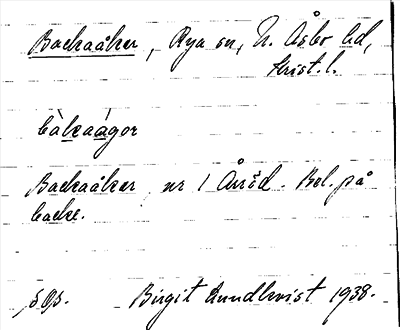 Backaåker, Rya sn, N. Åsbo hd,
Krist. l.
bàkaágor
Backaåker nr 1 Årröd. Bel. på
backe.
Birgit Lundkvist 1938.